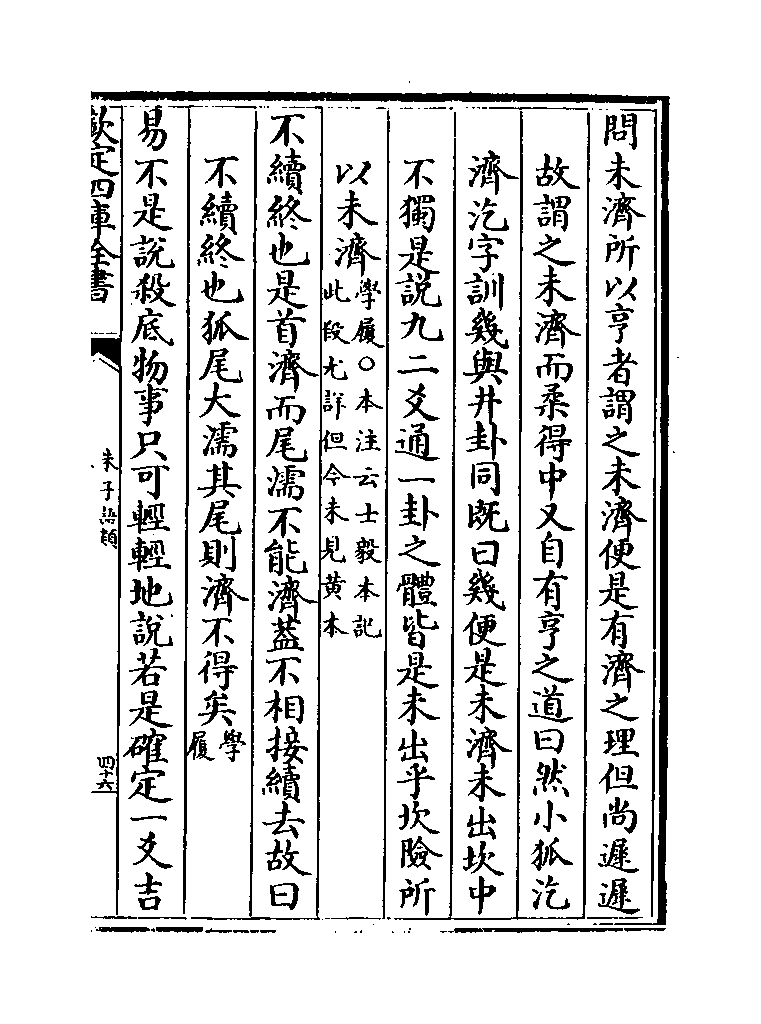 問未濟所以亨者謂之未濟便是有濟之理但尚遲遲
故謂之未濟而柔得中又自有亨之道曰然小狐汔
濟汔字訓幾與井卦同既曰幾便是未濟未出坎中
不獨是説九二爻通一卦之體皆是未出乎坎險所
以未濟學履○本注云士毅本記
此段尤詳但今未見黄本
不續終也是首濟而尾濡不能濟葢不相接續去故曰
不續終也狐尾大濡其尾則濟不得矣學
履
易不是説殺底物事只可輕輕地説若是確定一爻吉
欽定四庫全書
朱子語類
四十六